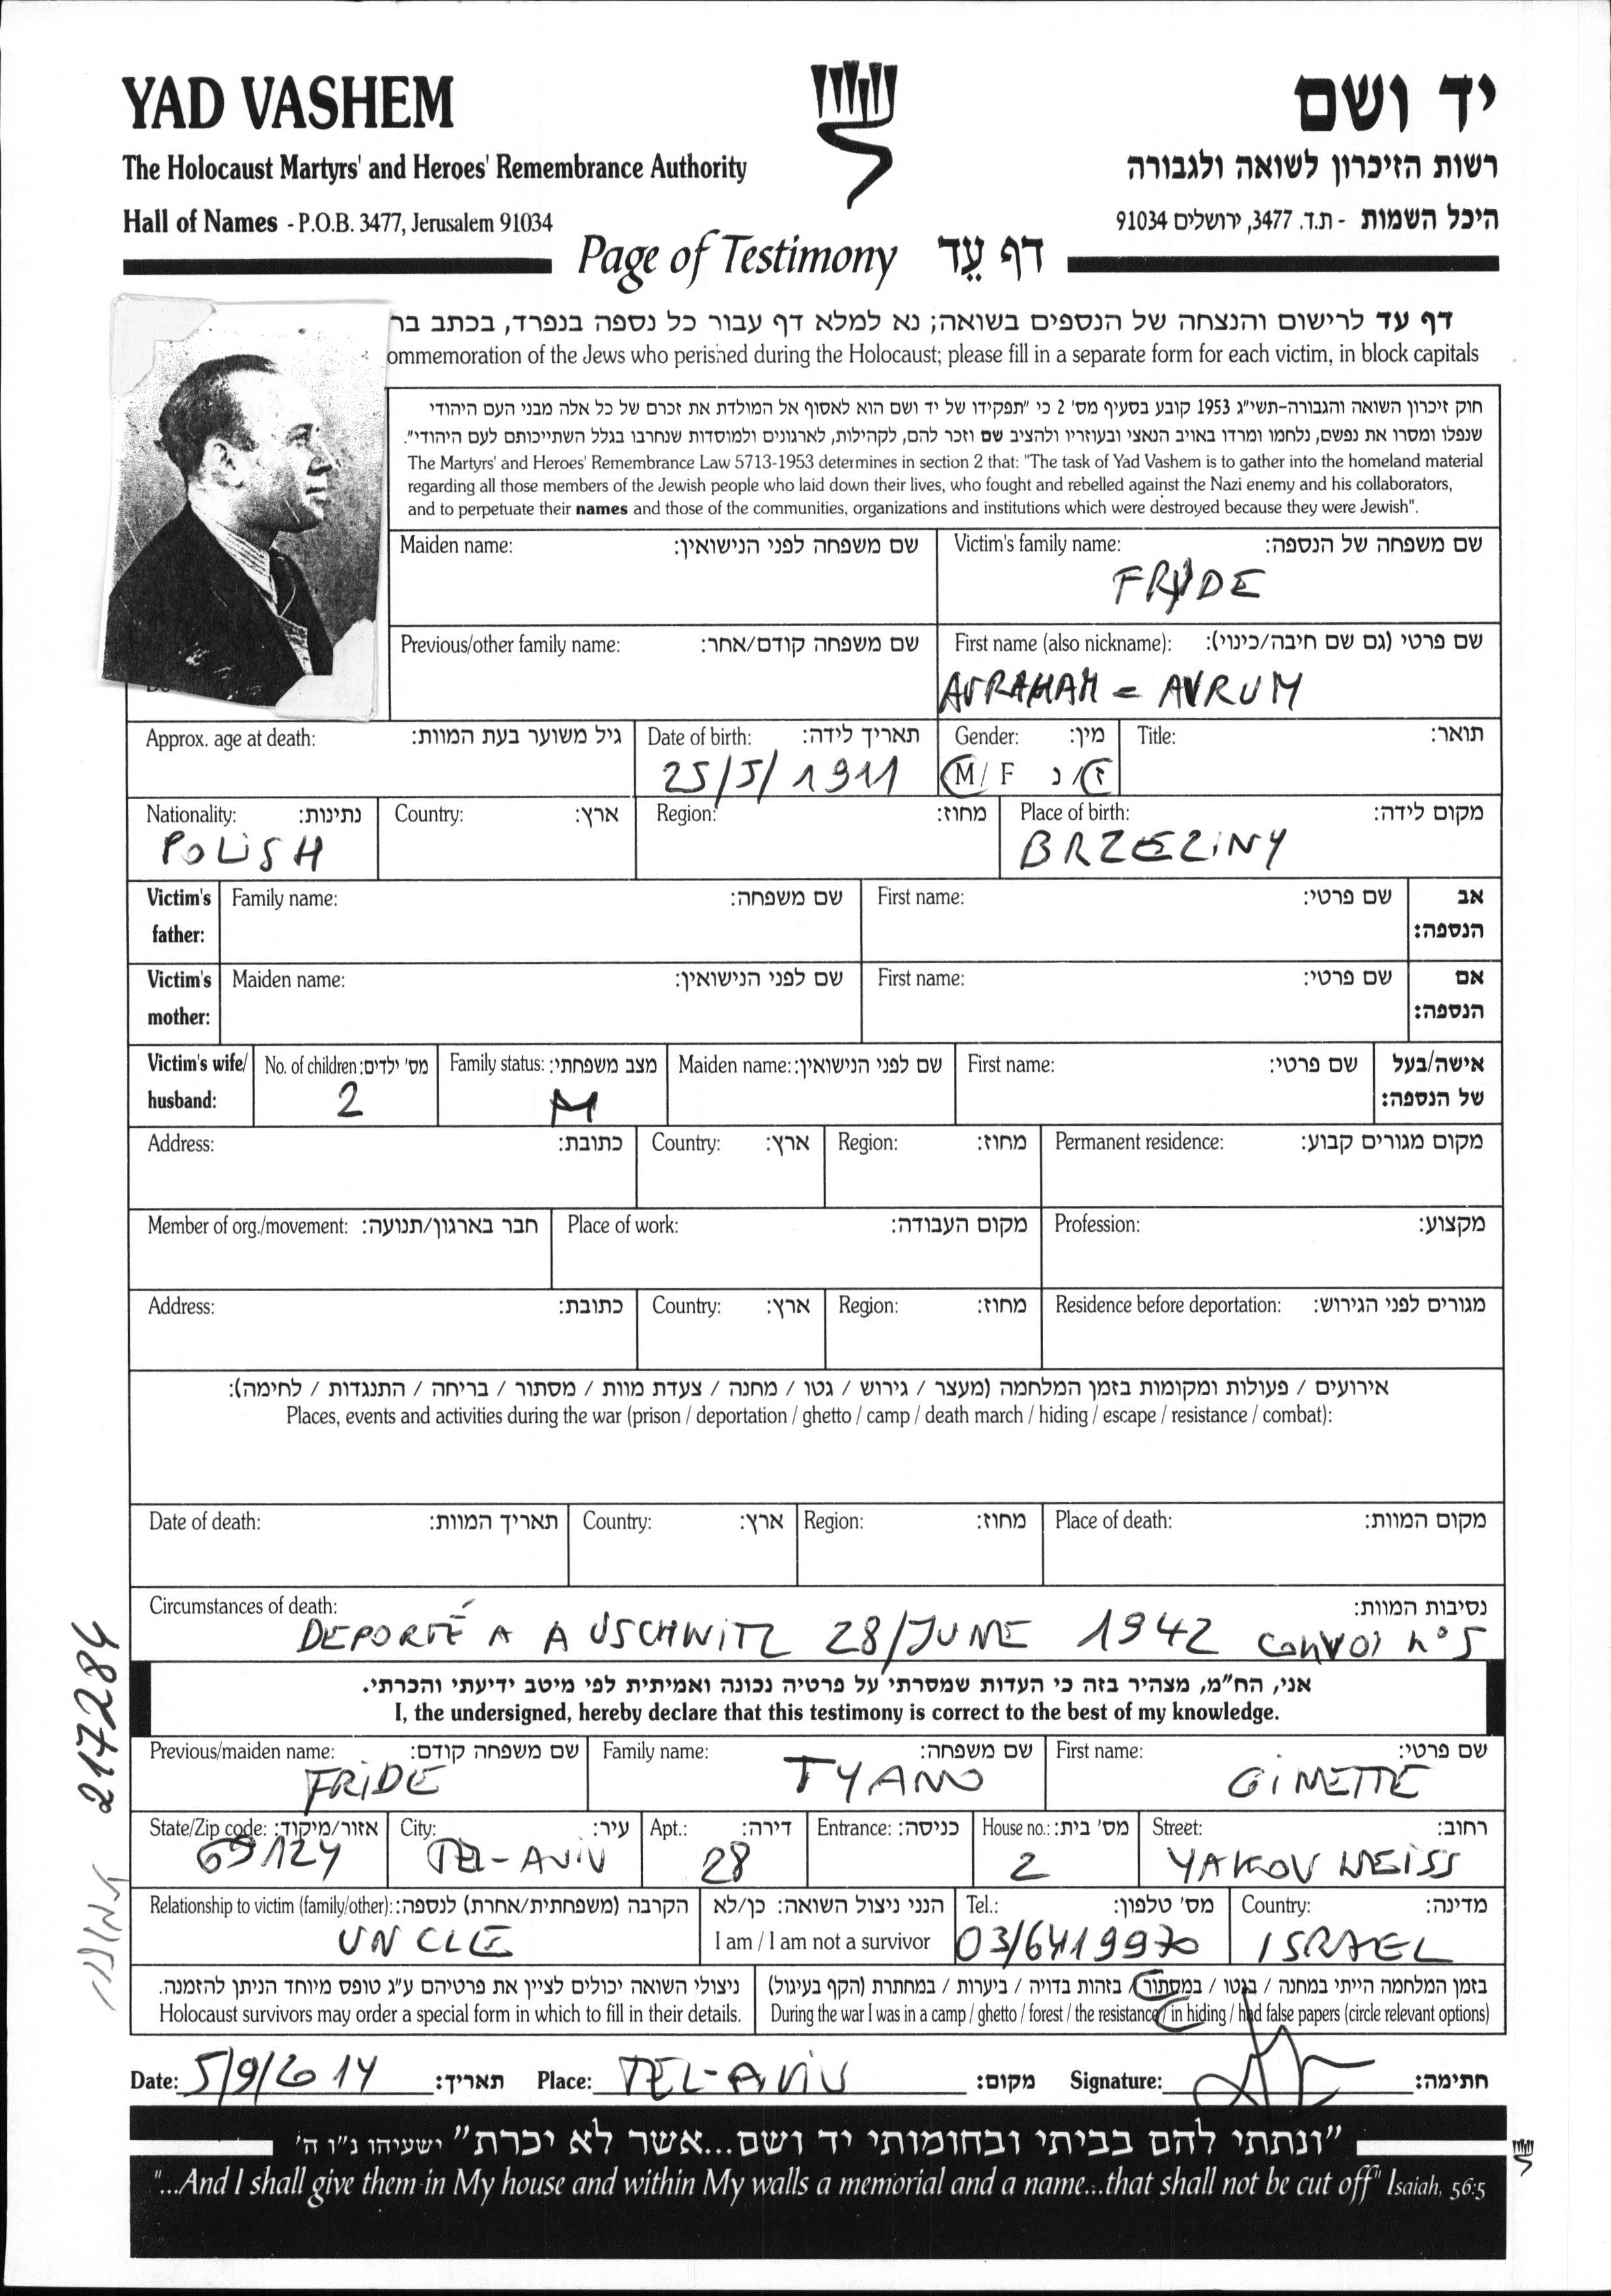 YAD VASHEM
יד ושם
The Holocaust Martyrs' and Heroes' Remembrance Authority
רשות הזיכרון לשואה ולגבורה
Hall of Names - P.O.B. 3477, Jerusalem 91034
היכל השמות - ת.ד. 3477, ירושלים 91034
Page of Testimony דף עֵד
דף עד לרישום והנצחה של הנספים בשואה; נא למלא דף עבור כל נספה בנפרד, בכתב בר
ommemoration of the Jews who perished during the Holocaust; please fill in a separate form for each victim, in block capitals
חוק זיכרון השואה והגבורה-תשי"ג 1953 קובע בסעיף מס' 2 כי "תפקידו של יד ושם הוא לאסוף אל המולדת את זכרם של כל אלה מבני העם היהודי
שנפלו ומסרו את נפשם, נלחמו ומרדו באויב הנאצי ובעוזריו ולהציב שם וזכר להם, לקהילות, לארגונים ולמוסדות שנחרבו בגלל השתייכותם לעם היהודי".
The Martyrs' and Heroes' Remembrance Law 5713-1953 determines in section 2 that: "The task of Yad Vashem is to gather into the homeland material
regarding all those members of the Jewish people who laid down their lives, who fought and rebelled against the Nazi enemy and his collaborators,
and to perpetuate their names and those of the communities, organizations and institutions which were destroyed because they were Jewish".
Maiden name: שם משפחה לפני הנישואין: Victim's family name: שם משפחה של הנספה:
FRYDE
Previous/other family name: שם משפחה קודם/אחר: First name (also nickname): שם פרטי (גם שם חיבה/כינוי):
AVRAHAM = AVRUM
Approx. age at death: גיל משוער בעת המוות: Date of birth: תאריך לידה: Gender: מין: Title: תואר:
25/5/1911 M / F ז / נ
Nationality: נתינות: Country: ארץ: Region: מחוז: Place of birth: מקום לידה:
POLISH BRZEZINY
Victim's Family name: שם משפחה: First name: שם פרטי: אב
father: הנספה:
Victim's Maiden name: שם לפני הנישואין: First name: שם פרטי: אם
mother: הנספה:
Victim's wife/ No. of children: מס' ילדים: Family status: מצב משפחתי: Maiden name: שם לפני הנישואין: First name: שם פרטי: אישה/בעל
husband: 2 M של הנספה:
Address: כתובת: Country: ארץ: Region: מחוז: Permanent residence: מקום מגורים קבוע:
Member of org./movement: חבר בארגון/תנועה: Place of work: מקום העבודה: Profession: מקצוע:
Address: כתובת: Country: ארץ: Region: מחוז: Residence before deportation: מגורים לפני הגירוש:
אירועים / פעולות ומקומות בזמן המלחמה (מעצר / גירוש / גטו / מחנה / צעדת מוות / מסתור / בריחה / התנגדות / לחימה):
Places, events and activities during the war (prison / deportation / ghetto / camp / death march / hiding / escape / resistance / combat):
Date of death: תאריך המוות: Country: ארץ: Region: מחוז: Place of death: מקום המוות:
Circumstances of death: נסיבות המוות:
DEPORTÉ A AUSCHWITZ 28/JUNE 1942 CONVOI n° 5
אני, הח"מ, מצהיר בזה כי העדות שמסרתי על פרטיה נכונה ואמיתית לפי מיטב ידיעתי והכרתי.
I, the undersigned, hereby declare that this testimony is correct to the best of my knowledge.
Previous/maiden name: שם משפחה קודם: Family name: שם משפחה: First name: שם פרטי:
FRIDE TYANO GINETTE
State/Zip code: אזור/מיקוד: City: עיר: Apt.: דירה: Entrance: כניסה: House no.: מס' בית: Street: רחוב:
69124 TEL-AVIV 28 2 YAKOV WEISS
Relationship to victim (family/other): הקרבה (משפחתית/אחרת) לנספה: הנני ניצול השואה: כן/לא Tel.: מס' טלפון: Country: מדינה:
UNCLE I am / I am not a survivor 03/6419970 ISRAEL
ניצולי השואה יכולים לציין את פרטיהם ע"ג טופס מיוחד הניתן להזמנה. בזמן המלחמה הייתי במחנה / בגטו / במסתור / בזהות בדויה / ביערות / במחתרת (הקף בעיגול)
Holocaust survivors may order a special form in which to fill in their details. During the war I was in a camp / ghetto / forest / the resistance / in hiding / had false papers (circle relevant options)
Date: 5/9/2014 תאריך: Place: TEL-AVIV מקום: Signature: חתימה:
"ונתתי להם בביתי ובחומותי יד ושם...אשר לא יכרת" ישעיהו נ"ו ה'
"...And I shall give them in My house and within My walls a memorial and a name...that shall not be cut off" Isaiah, 56:5
217284